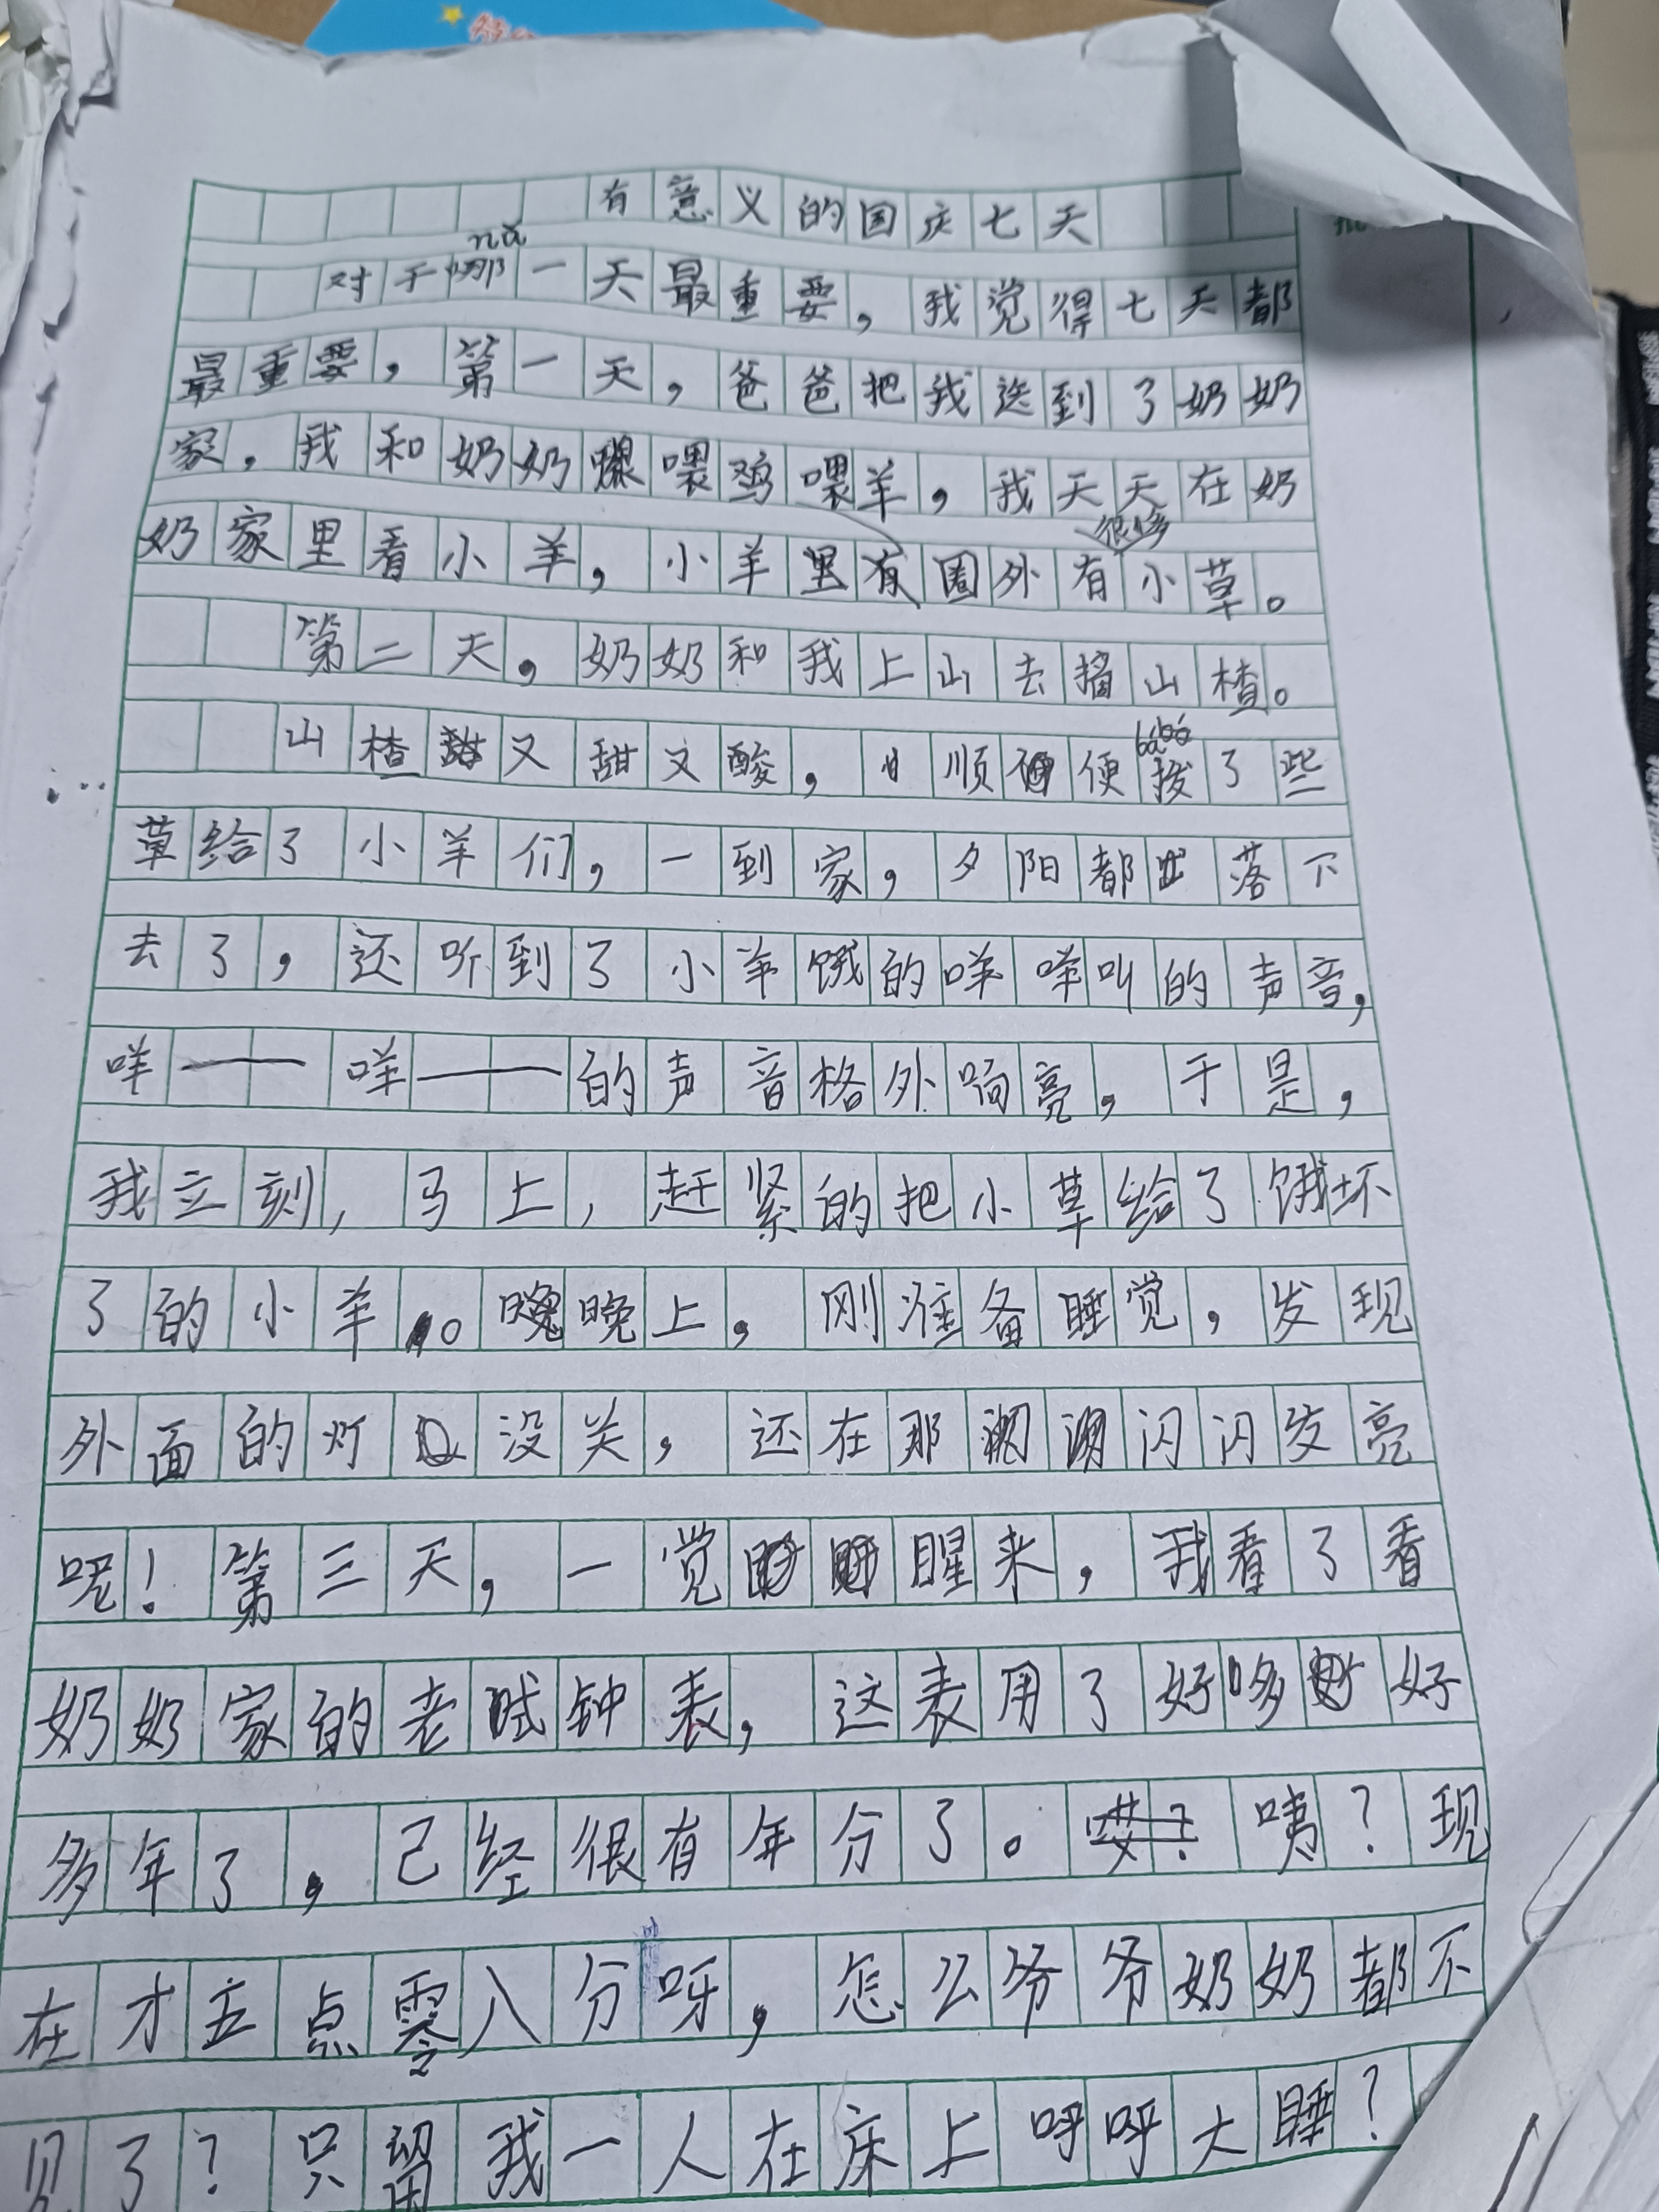 有意义的国庆七天
nǎ
对于哪一天最重要，我觉得七天都
最重要，第一天，爸爸把我送到了奶奶
家，我和奶奶喂鸡喂羊，我天天在奶
很多
奶家里看小羊，小羊圈外有小草。
第二天，奶奶和我上山去摘山楂。
山楂又甜又酸，顺便拨了些
草给了小羊们，一到家，夕阳都落下
去了，还听到了小羊饿的咩咩叫的声音，
咩——咩——的声音格外响亮，于是，
我立刻，马上，赶紧的把小草给了饿坏
了的小羊。晚上，刚准备睡觉，发现
外面的灯没关，还在那闪闪发亮
呢！第三天，一觉醒来，我看了看
奶奶家的老式钟表，这表用了好多好
多年了，己经很有年分了。咦？现
在才五点零八分呀，怎么爷爷奶奶都不
见了？只留我一人在床上呼呼大睡？